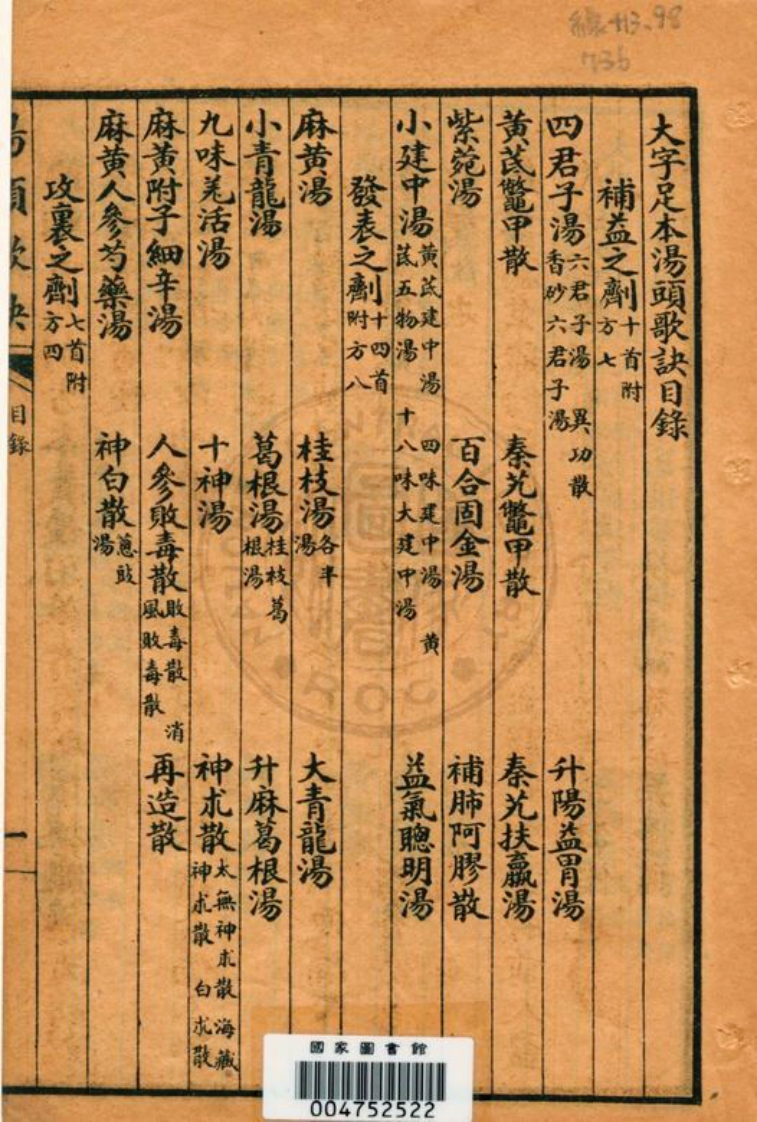 線 413.98
736
大字足本湯頭歌訣目錄
補益之劑十首附方七
四君子湯六君子湯 異功散 香砂六君子湯 升陽益胃湯
黃芪鼈甲散 秦艽鼈甲散 秦艽扶羸湯
紫菀湯 百合固金湯 補肺阿膠散
小建中湯黃芪建中湯 四味建中湯 黃芪五物湯 十八味大建中湯 益氣聰明湯
發表之劑十四首附方八
麻黃湯 桂枝湯各半湯 大青龍湯
小青龍湯 葛根湯桂枝葛根湯 升麻葛根湯
九味羌活湯 十神湯 神朮散太無神朮散 海藏神朮散 白朮散
麻黃附子細辛湯 人參敗毒散敗毒散 消風敗毒散 再造散
麻黃人參芍藥湯 神白散蔥豉湯
攻裏之劑七首附方四
湯頭歌訣 目錄 一
國家圖書館
004752522